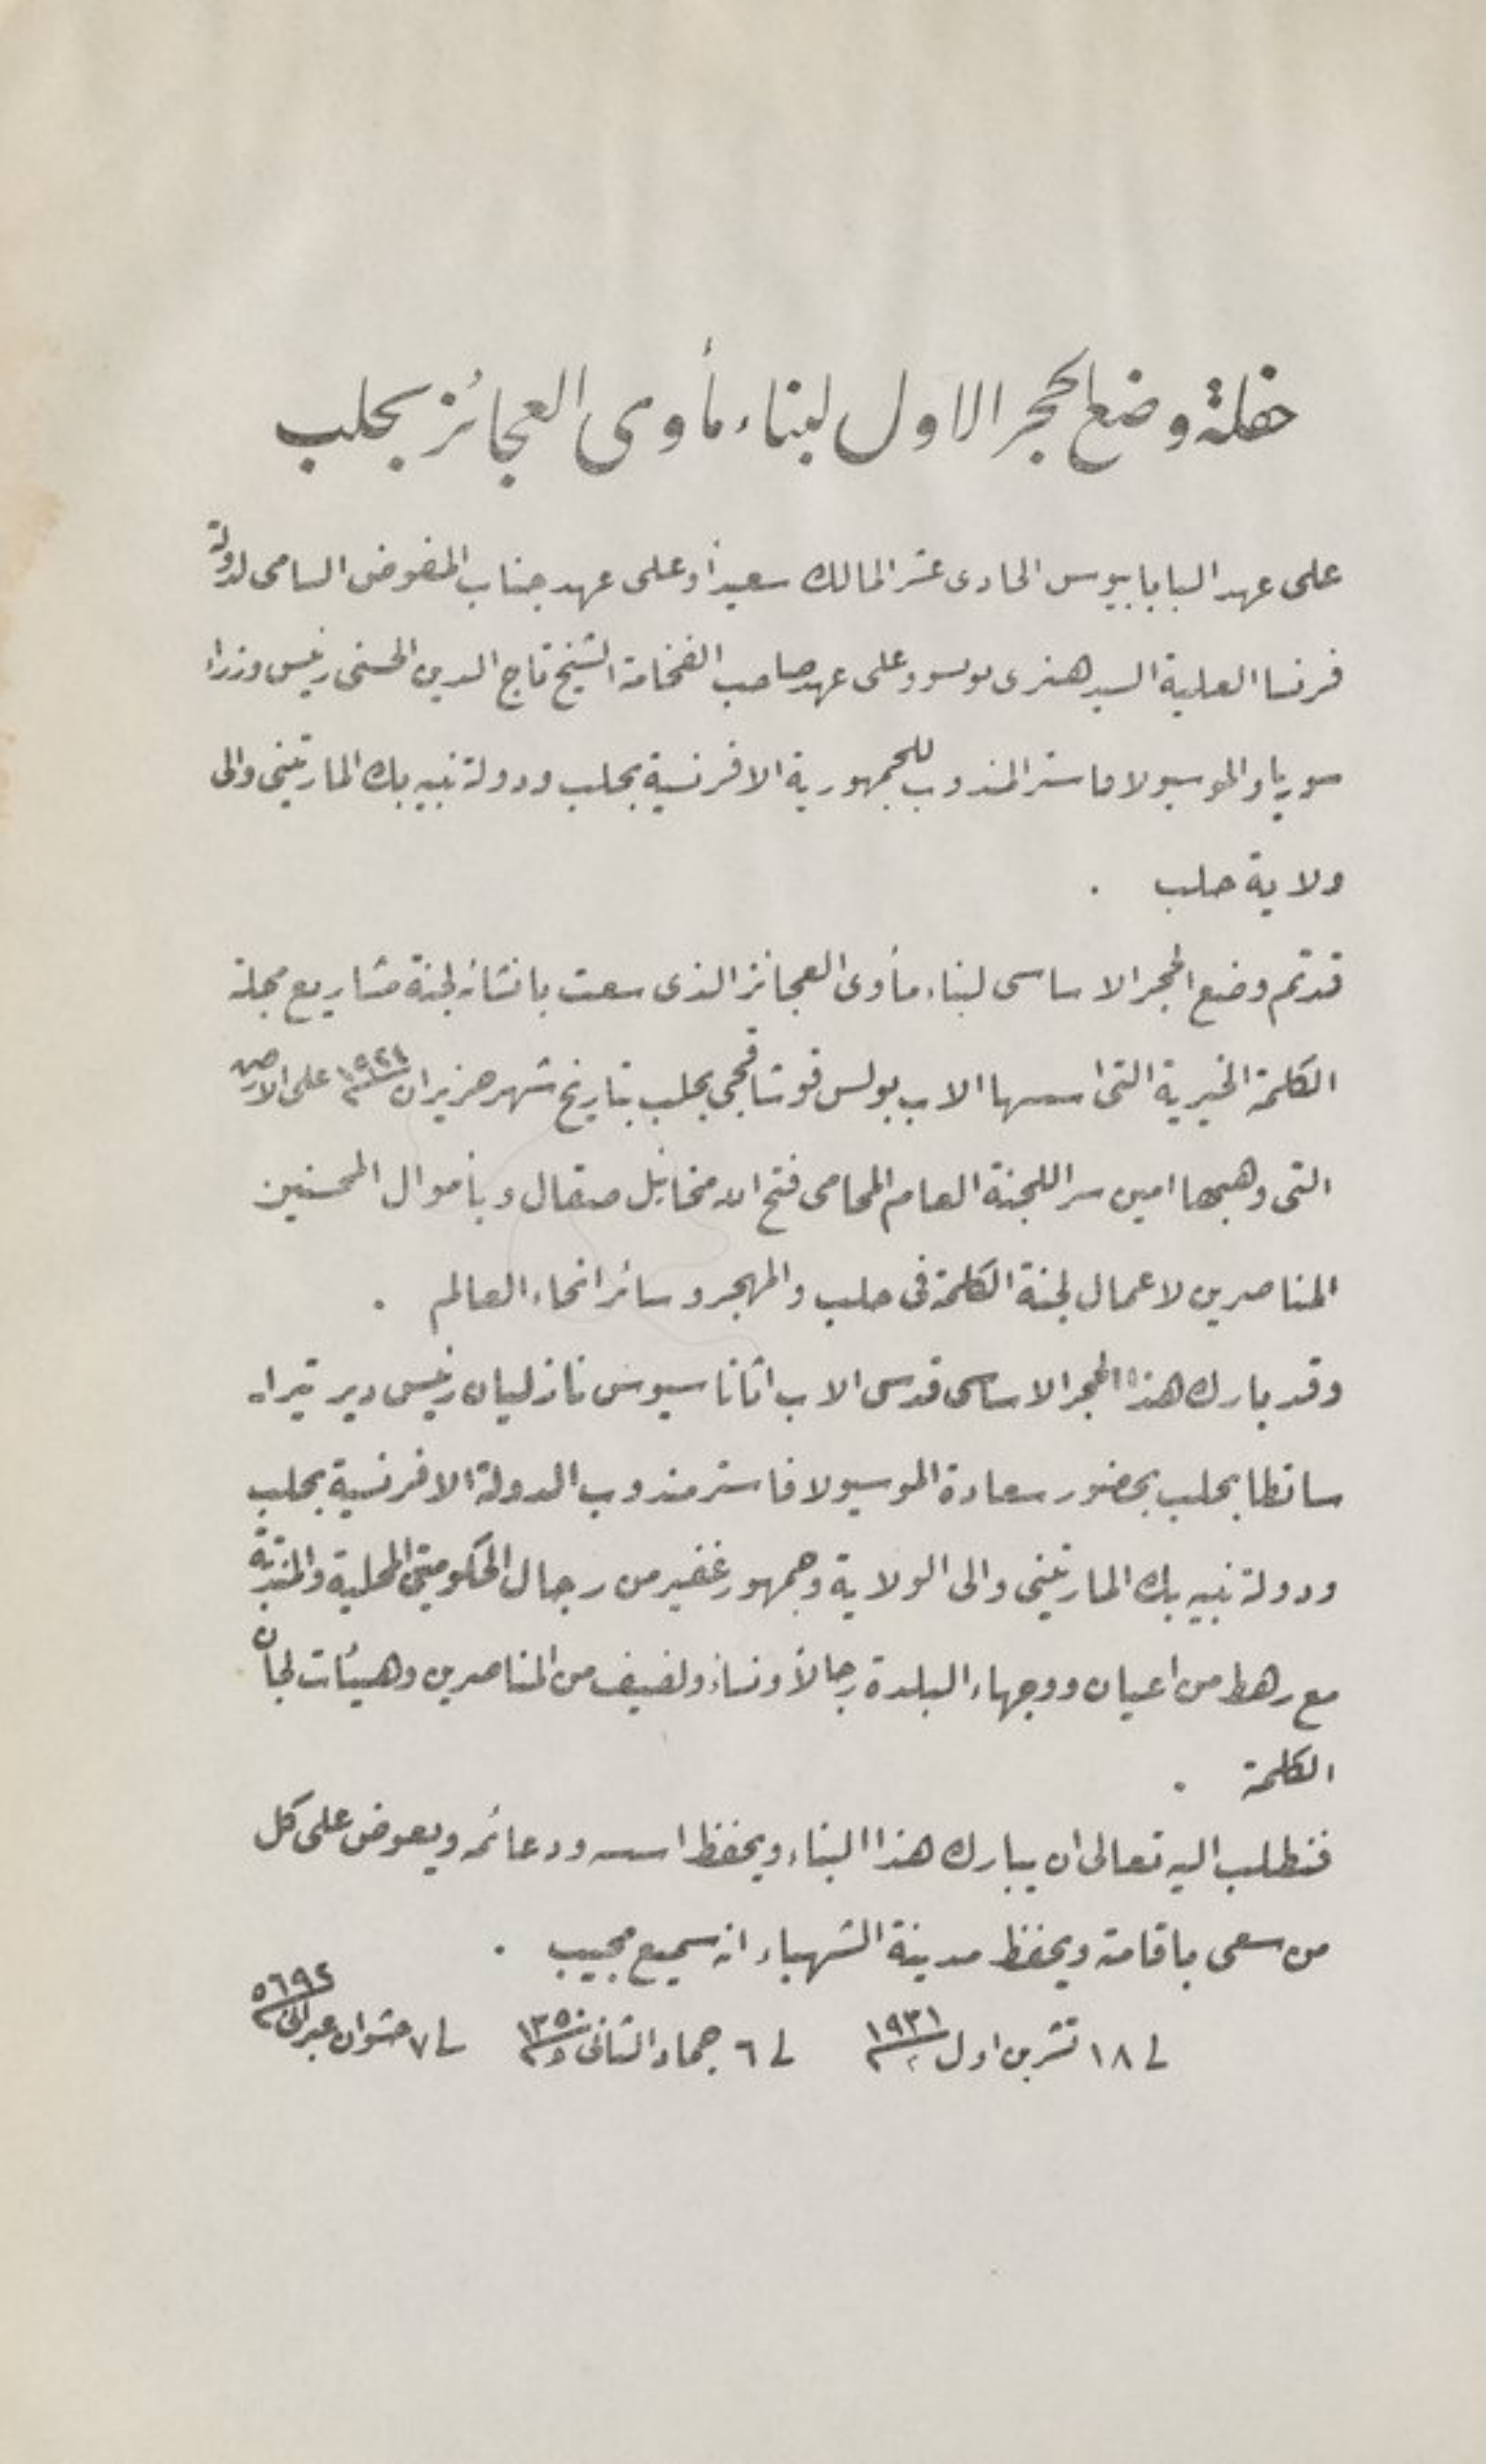 حفلة وضع الحجر الاول لبناء مأوى العجائز بحلب
على عهد البابا بيوس الحادى عشر المالك سعيداً وعلى عهد جناب المفوض السامى لدولة
فرنسا العلية السيد هنرى بونسو وعلى عهد صاحب الفخامة الشيخ تاج الدين الحسنى رئيس وزراء
سوريا والموسيو لافاستر المندوب للجمهورية الافرنسية بحلب ودولة نبيه بك المارتينى والى
ولاية حلب .
قد تم وضع الحجر الاساسى لبناء مأوى العجائز الذى سعت بانشائه لجنة مشاريع مجلة
الكلمة الخيرية التى اسسها الاب بولس قوشاقجى بحلب بتاريخ شهر حزيران ١٩٢٤ على الارض
التى وهبها امين سر اللجنة العام المحامى فتح الله مخائيل صقال وبأموال المحسنين
المناصرين لاعمال لجنة الكلمة فى حلب والمهجر وسائر انحاء العالم .
وقد بارك هذا الحجر الاساسى قدس الاب اثاناسيوس نازليان رئيس دير تيراه
سانطا بحلب بحضور سعادة الموسيو لافاستر مندوب الدولة الافرنسية بحلب
ودولة نبيه بك المارتينى والى الولاية وجمهور غفير من رجال الحكومتى المحلية والمنتدبة
مع رهط من اعيان ووجهاء البلدة رجالاً ونساءً ولفيف من المناصرين وهيئات لجان
الكلمة .
فنطلب اليه تعالى ان يبارك هذا البناء ويحفظ اسسه ودعائمه ويعوض على كل
من سعى باقامته ويحفظ مدينة الشهباء انه سميع مجيب .
فى ١٨ تشرين اول ١٩٣١ فى ٦ جماد الثانى ١٣٥٠ فى ٧ حشوان عبرانى ٥٦٩٢